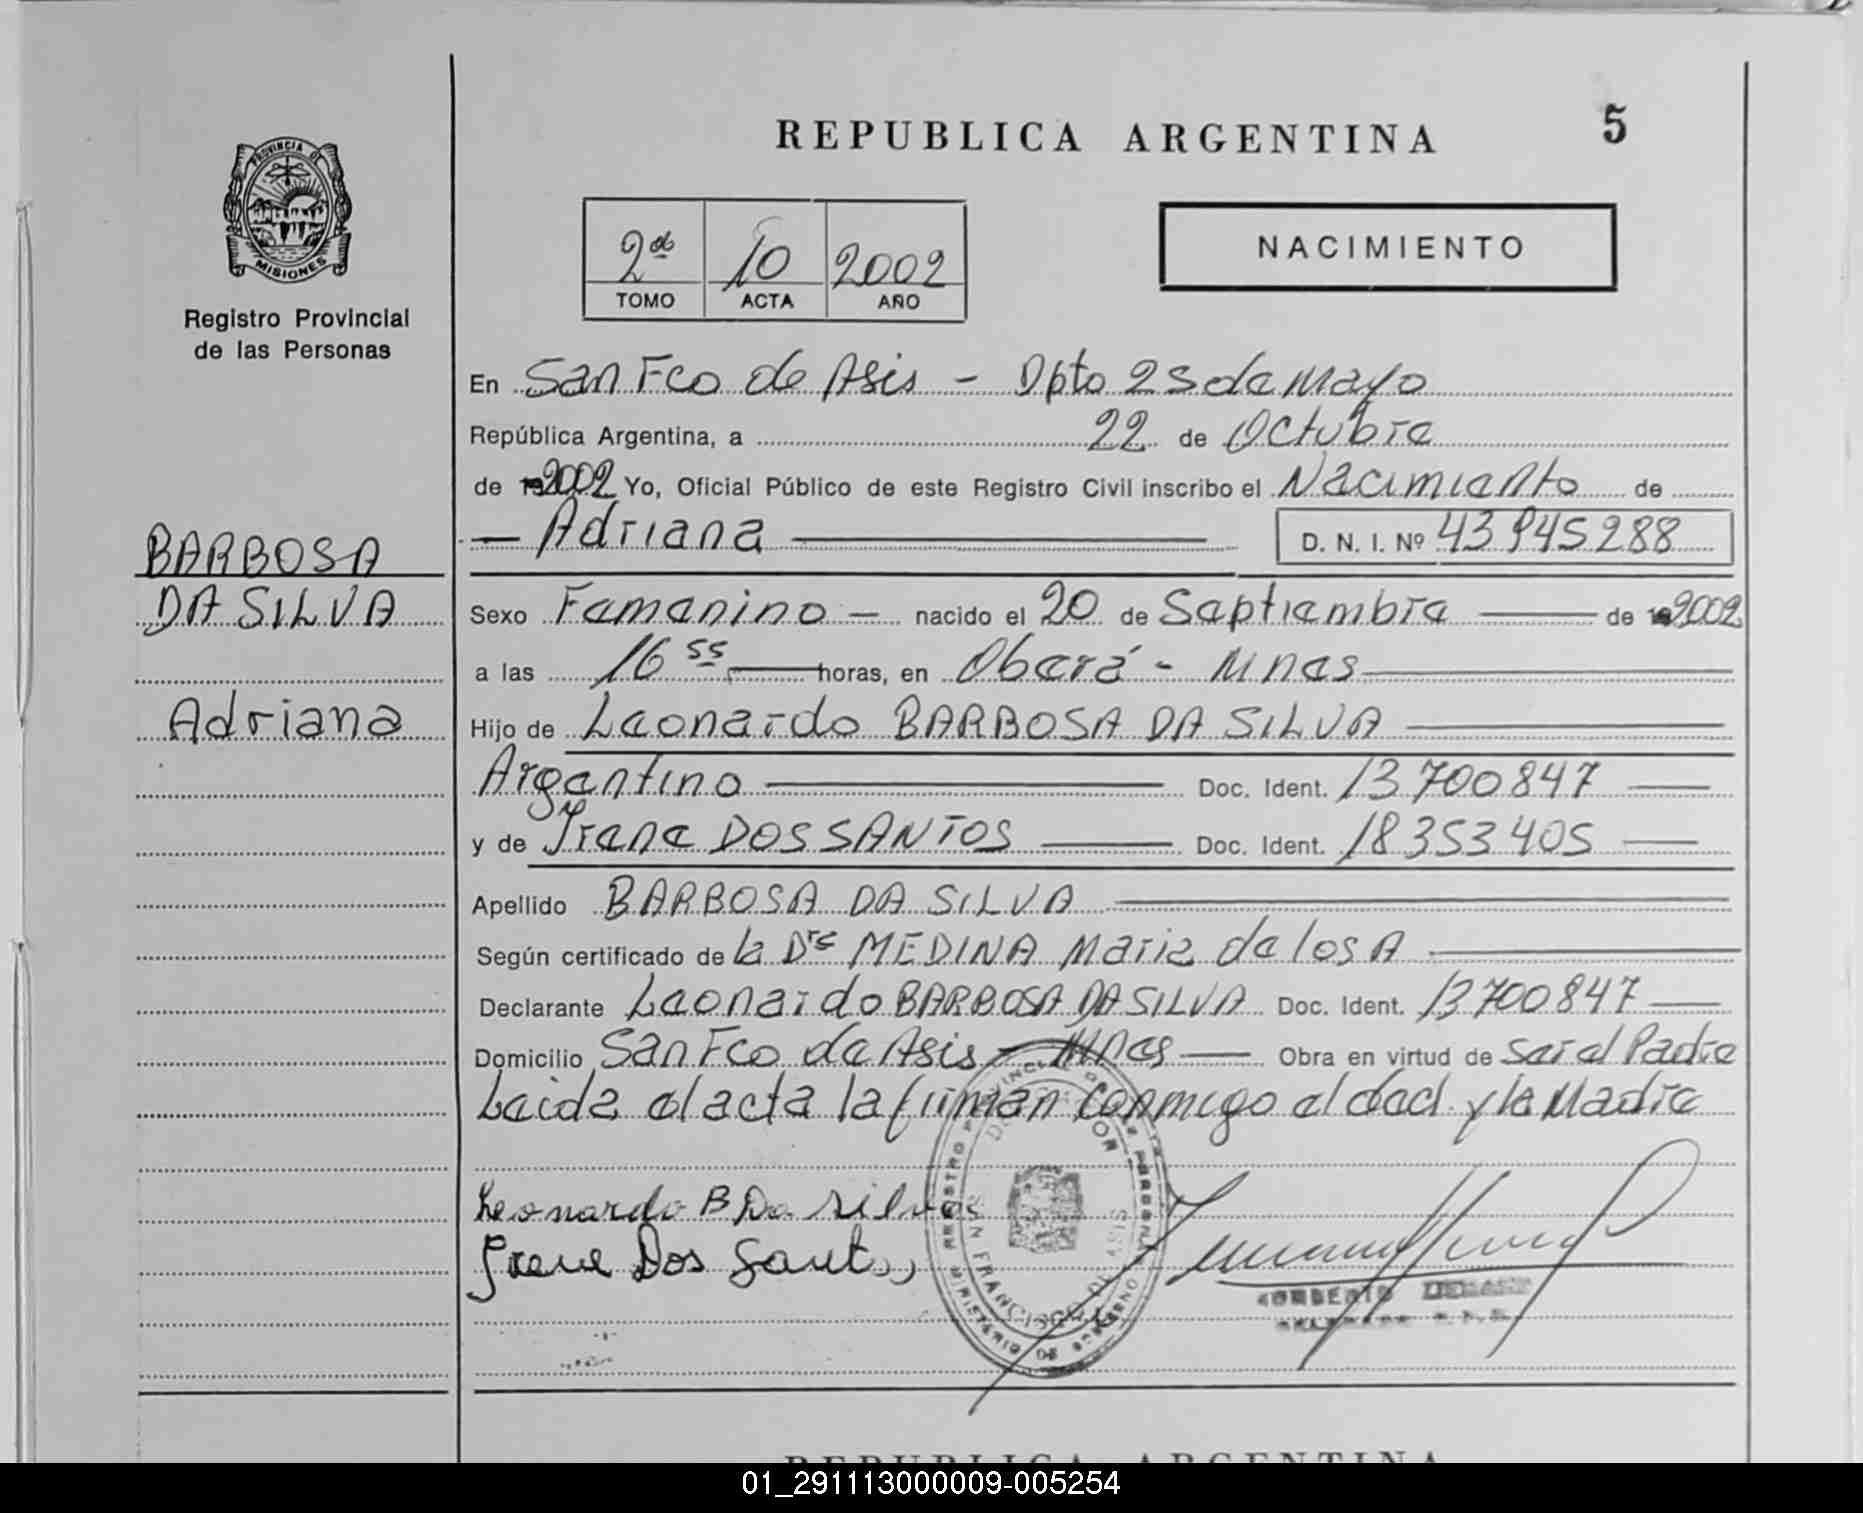 REPUBLICA ARGENTINA
5
PROVINCIA DE
MISIONES
Registro Provincial
de las Personas
2do 10 2002
TOMO ACTA AÑO
NACIMIENTO
En San Fco de Asis - Dpto 25 de Mayo
República Argentina, a 22 de Octubre
de 2002 Yo, Oficial Público de este Registro Civil inscribo el Nacimiento de
— Adriana — D. N. I. Nº 43 945 288
BARBOSA
DA SILVA
Adriana
Sexo Femenino — nacido el 20 de Septiembre — de 2002
a las 16 55 — horas, en Oberá - Mnes
Hijo de Leonardo BARBOSA DA SILVA
Argentino — Doc. Ident. 13 700 847 —
y de Irene DOS SANTOS — Doc. Ident. 18 353 405 —
Apellido BARBOSA DA SILVA
Según certificado de la Dra MEDINA Maria de los A
Declarante Leonardo BARBOSA DA SILVA Doc. Ident. 13 700 847 —
Domicilio San Fco de Asis - Mnes — Obra en virtud de ser el Padre
Leida el acta la firman conmigo el decl. y la Madre
Leonardo B Da Silva
Irene Dos Santos
SAN FRANCISCO DE ASIS
REPUBLICA ARGENTINA
01_291113000009-005254